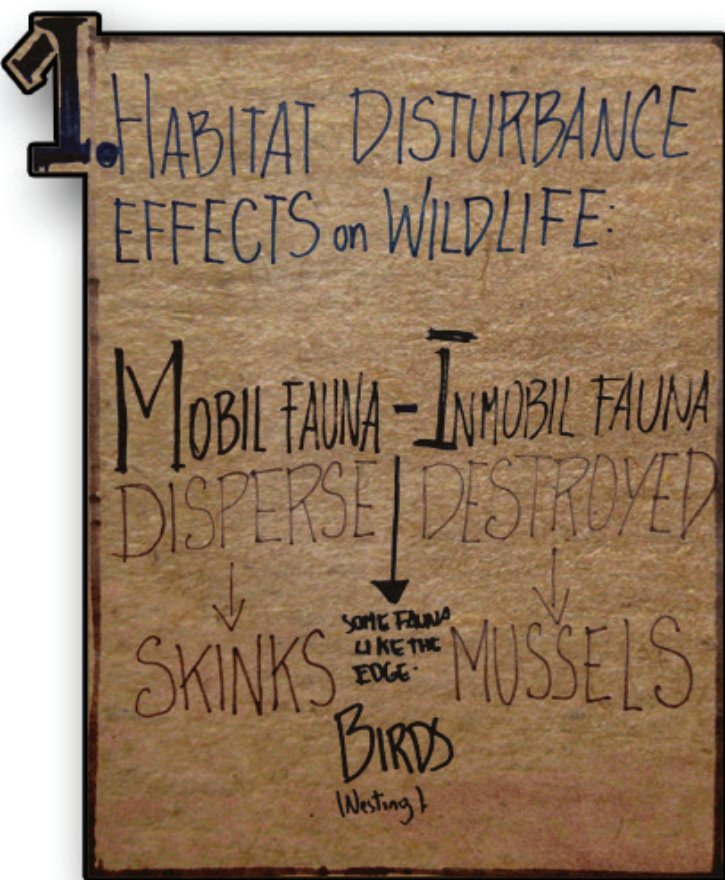 1. HABITAT DISTURBANCE
EFFECTS on WILDLIFE:
MOBIL FAUNA - INMOBIL FAUNA
DISPERSE DESTROYED
SOME FAUNA
LIKE THE
EDGE.
SKINKS MUSSELS
BIRDS
(Nesting)